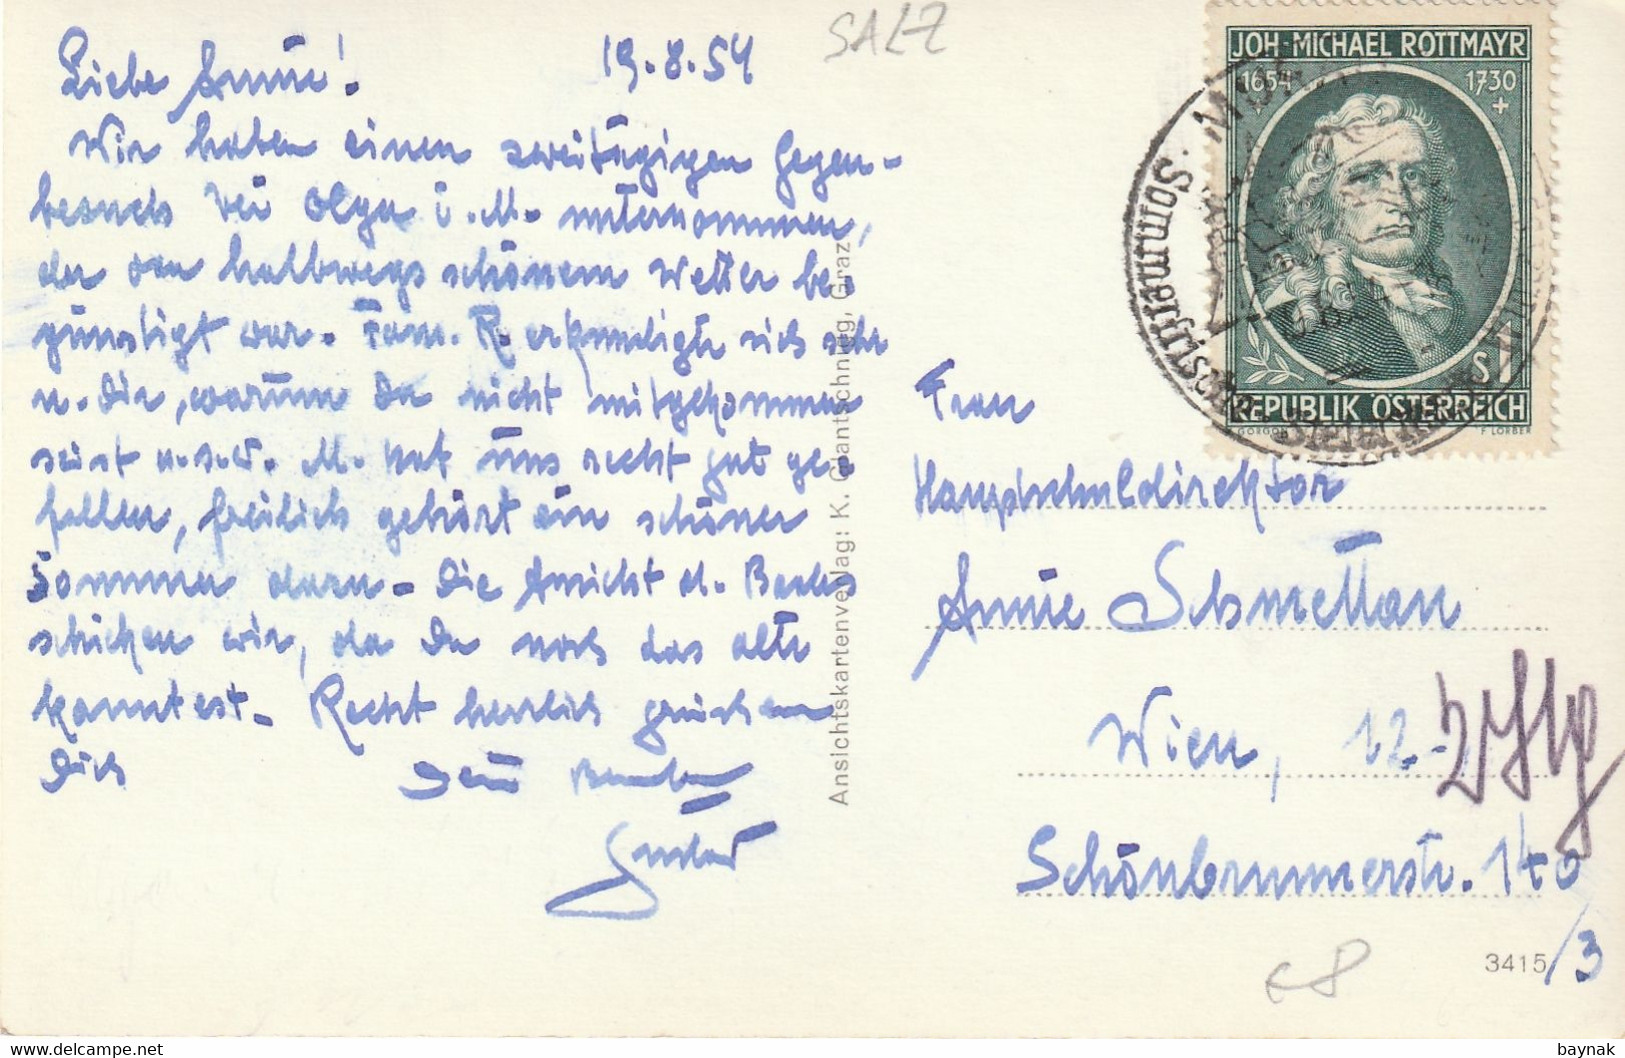 SALZ
19.8.54
Liebe Annie!
Wir haben einen zweitägigen Gegen-
besuch bei Olga i. M. unternommen,
der von halbwegs schönem Wetter be-
günstigt war. Fam. R. erkundigte sich sehr
n. Dir, warum Du nicht mitgekommen
seist u.s.w. M. hat uns recht gut ge-
fallen, freilich gehört ein schöner
Sommer dazu. Die Ansicht d. Bades
schicken wir, da Du noch das alte
kanntest. Recht herzlich grüssen
Dich
Gustav
Ansichtskartenverlag: K. Glantschnigg, Graz
JOH. MICHAEL ROTTMAYR
1654 1730
+
S 1
REPUBLIK ÖSTERREICH
GORGON F. LORBER
Sommerfrische
Frau
Hauptschuldirektor
Annie Schmettan
Wien, 12.
Schönbrunnerstr. 140
/3
3415
€8
baynak